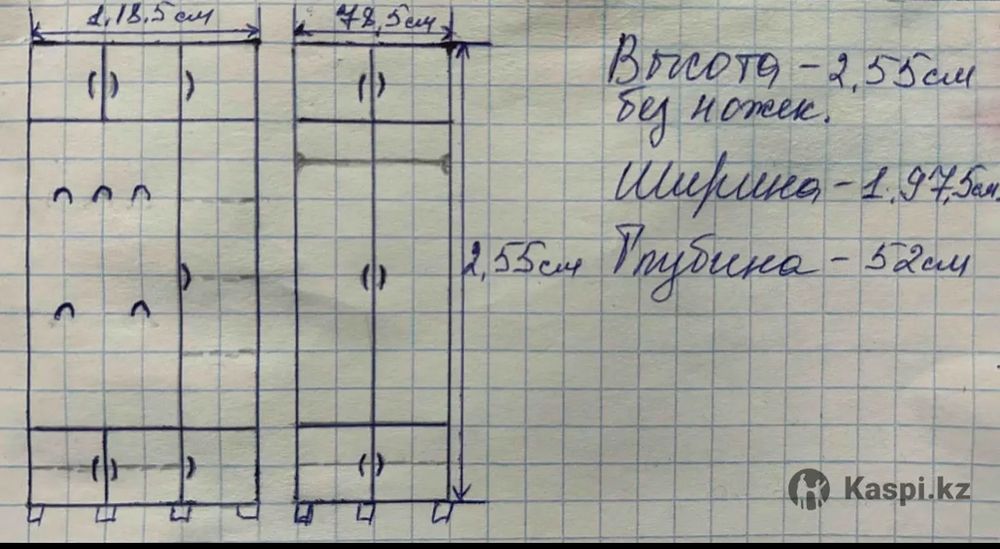 1,18.5см
78,5см
Высота - 2,55см
без ножек.
Ширина - 1.97,5см.
2,55см
Глубина - 52см
Kaspi.kz